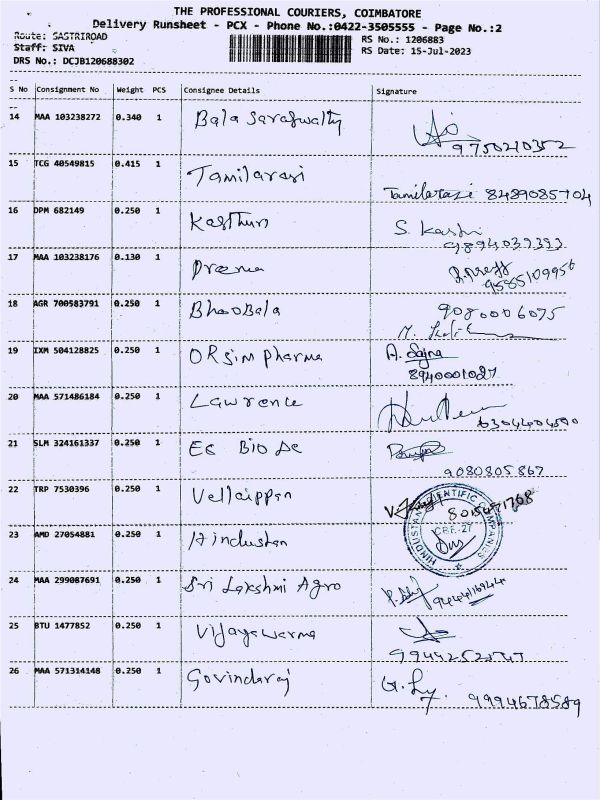 THE PROFESSIONAL COURIERS, COIMBATORE
Delivery Runsheet - PCX - Phone No.:0422-3505555 - Page No.:2
Route: SASTRIROAD RS No.: 1206883
Staff: SIVA RS Date: 15-Jul-2023
DRS No.: DCJB120688302
S No Consignment No Weight PCS Consignee Details Signature
14 MAA 103238272 0.340 1 Bala Saraswathy
9750210352
15 TCG 40549815 0.415 1 Tamilarasi
Tamilarasi 8489085704
16 DPM 682149 0.250 1 Kasthuri S. Kasthri
9894039393
17 MAA 103238176 0.130 1 Prema
9585109956
18 AGR 700583791 0.250 1 BhooBala 9080006075
19 IXM 504128825 0.250 1 ORsim pharma A. Sajna
8940001087
20 MAA 571486184 0.250 1 Lawrence
6304404590
21 SLM 324161337 0.250 1 EG BIO AC
9080805867
22 TRP 7530396 0.250 1 Vellaippan
8015471768
HINDUSTAN SCIENTIFIC COMPANIES
CBE-27
23 AMD 27054881 0.250 1 Hindustan
24 MAA 299087691 0.250 1 Sri Lakshmi Agro
25 BTU 1477852 0.250 1 Vijayawarma
26 MAA 571314148 0.250 1 Govindaraj
9994678589